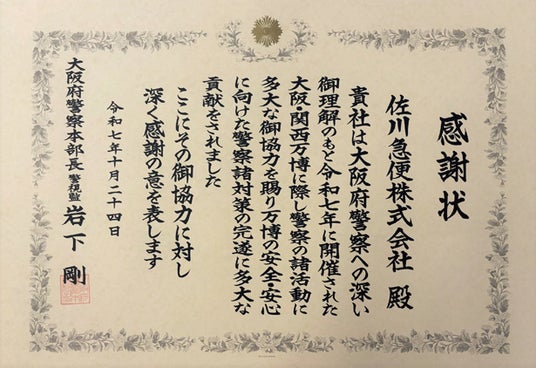 感謝状
佐川急便株式会社 殿
貴社は大阪府警察への深い
御理解のもと令和七年に開催された
大阪・関西万博に際し警察の諸活動に
多大な御協力を賜り万博の安全・安心
に向けた警察諸対策の完遂に多大な
貢献をされました
ここにその御協力に対し
深く感謝の意を表します
令和七年十月二十四日
大阪府警察本部長 警視監 岩下 剛